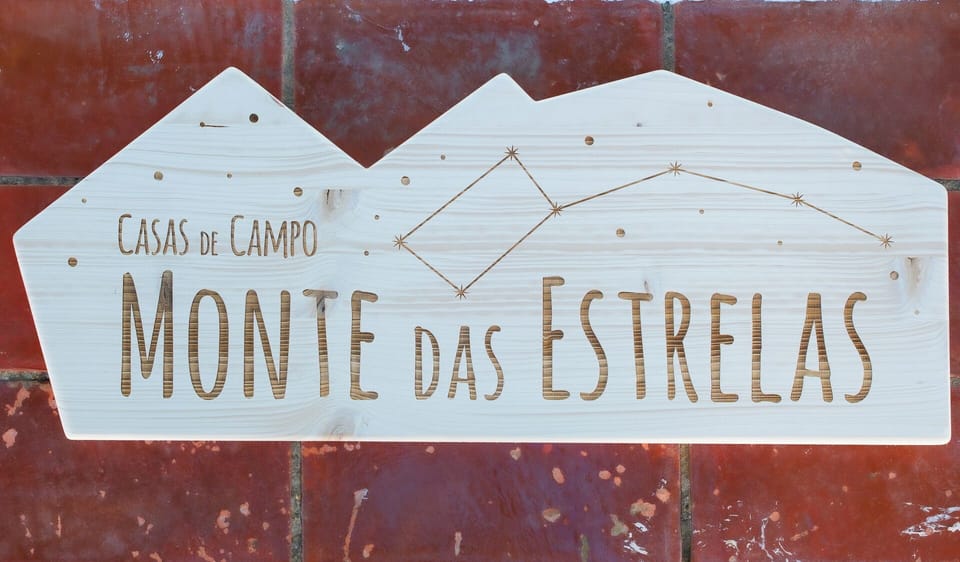 Casas de Campo
Monte das Estrelas